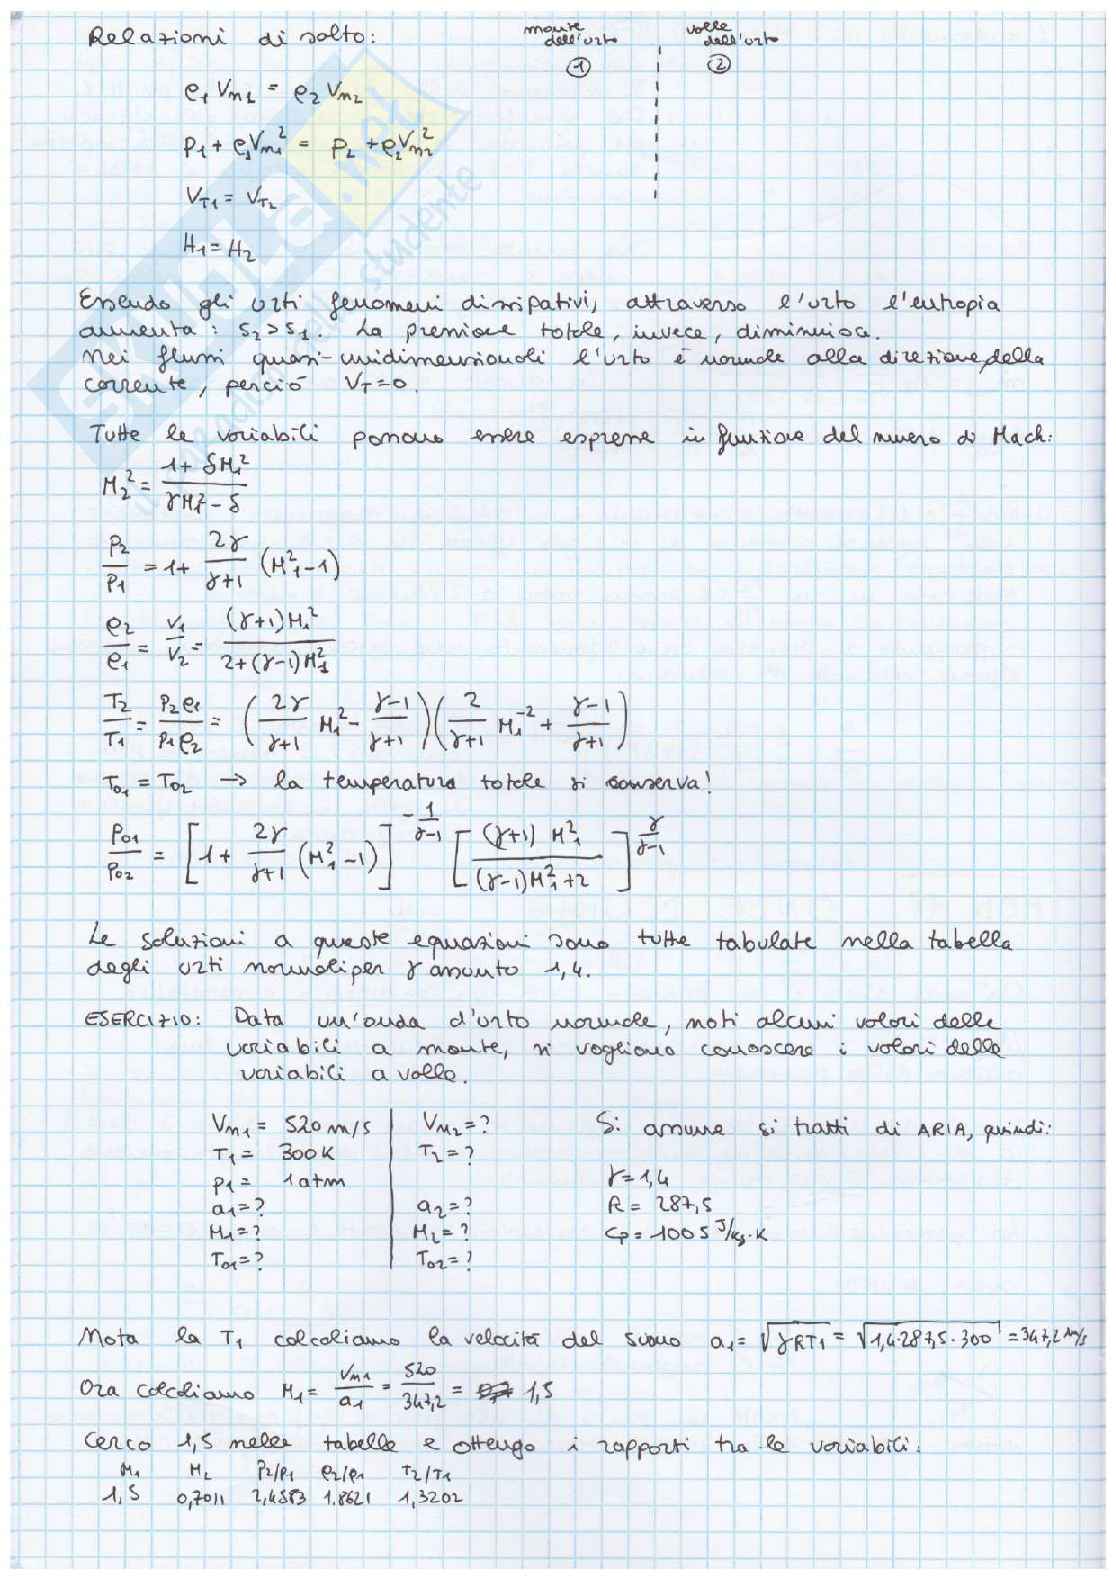 Relazioni di salto:
monte dell'urto
valle dell'urto
① ②
ρ1 Vn1 = ρ2 Vn2
p1 + ρ1Vn1² = p2 + ρ2Vn2²
VT1 = VT2
H1 = H2
Essendo gli urti fenomeni dissipativi, attraverso l'urto l'entropia
aumenta: s2 > s1. La pressione totale, invece, diminuisce.
Nei flussi quasi-unidimensionali l'urto è normale alla direzione della
corrente, perciò VT = 0.
Tutte le variabili possono essere espresse in funzione del numero di Mach:
M2² = (1 + δM1²) / (γM1² - δ)
p2/p1 = 1 + 2γ/(γ+1) (M1² - 1)
ρ2/ρ1 = V1/V2 = (γ+1)M1² / (2+(γ-1)M1²)
T2/T1 = p2ρ1/p1ρ2 = (2γ/(γ+1) M1² - (γ-1)/(γ+1)) (2/(γ+1) M1^-2 + (γ-1)/(γ+1))
T01 = T02 → la temperatura totale si conserva!
p01/p02 = [1 + 2γ/(γ+1) (M1² - 1)]^(-1/(γ-1)) [(γ+1) M1² / ((γ-1)M1² + 2)]^(γ/(γ-1))
Le soluzioni a queste equazioni sono tutte tabulate nella tabella
degli urti normali per γ assunto 1,4.
ESERCIZIO: Data un'onda d'urto normale, noti alcuni valori delle
variabili a monte, si vogliono conoscere i valori delle
variabili a valle.
Vn1 = 520 m/s | Vn2 = ? Si assume si tratti di ARIA, quindi:
T1 = 300K | T2 = ?
p1 = 1atm | γ = 1,4
a1 = ? | a2 = ? R = 287,5
M1 = ? | M2 = ? cp = 1005 J/kg·K
T01 = ? | T02 = ?
Nota la T1 calcoliamo la velocità del suono a1 = √(γRT1) = √(1,4·287,5·300) = 347,2 m/s
Ora calcoliamo M1 = Vn1/a1 = 520/347,2 = 1,5
Cerco 1,5 nelle tabelle e ottengo i rapporti tra le variabili.
M1 M2 p2/p1 ρ2/ρ1 T2/T1
1,5 0,7011 2,4583 1.8621 1,3202